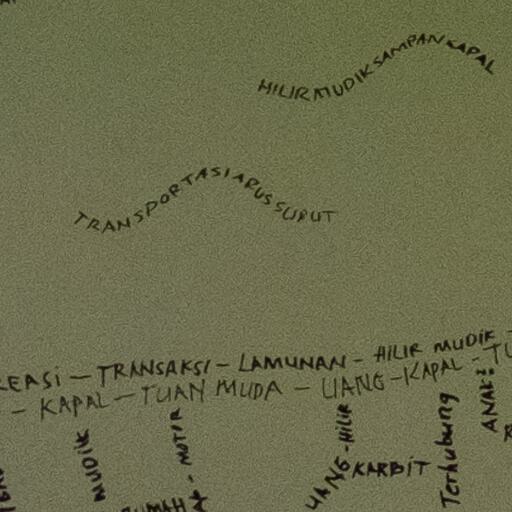 HILIR MUDIK SAMPAN KAPAL
TRANSPORTASI ARUS SURUT
TRANSAKSI - LAMUNAN - HILIR MUDIK
- KAPAL - TUAN MUDA - UANG - KAPAL -
MUDIK
MOTIR
UANG - HILIR
KARBIT
Terhubung
ANAK2